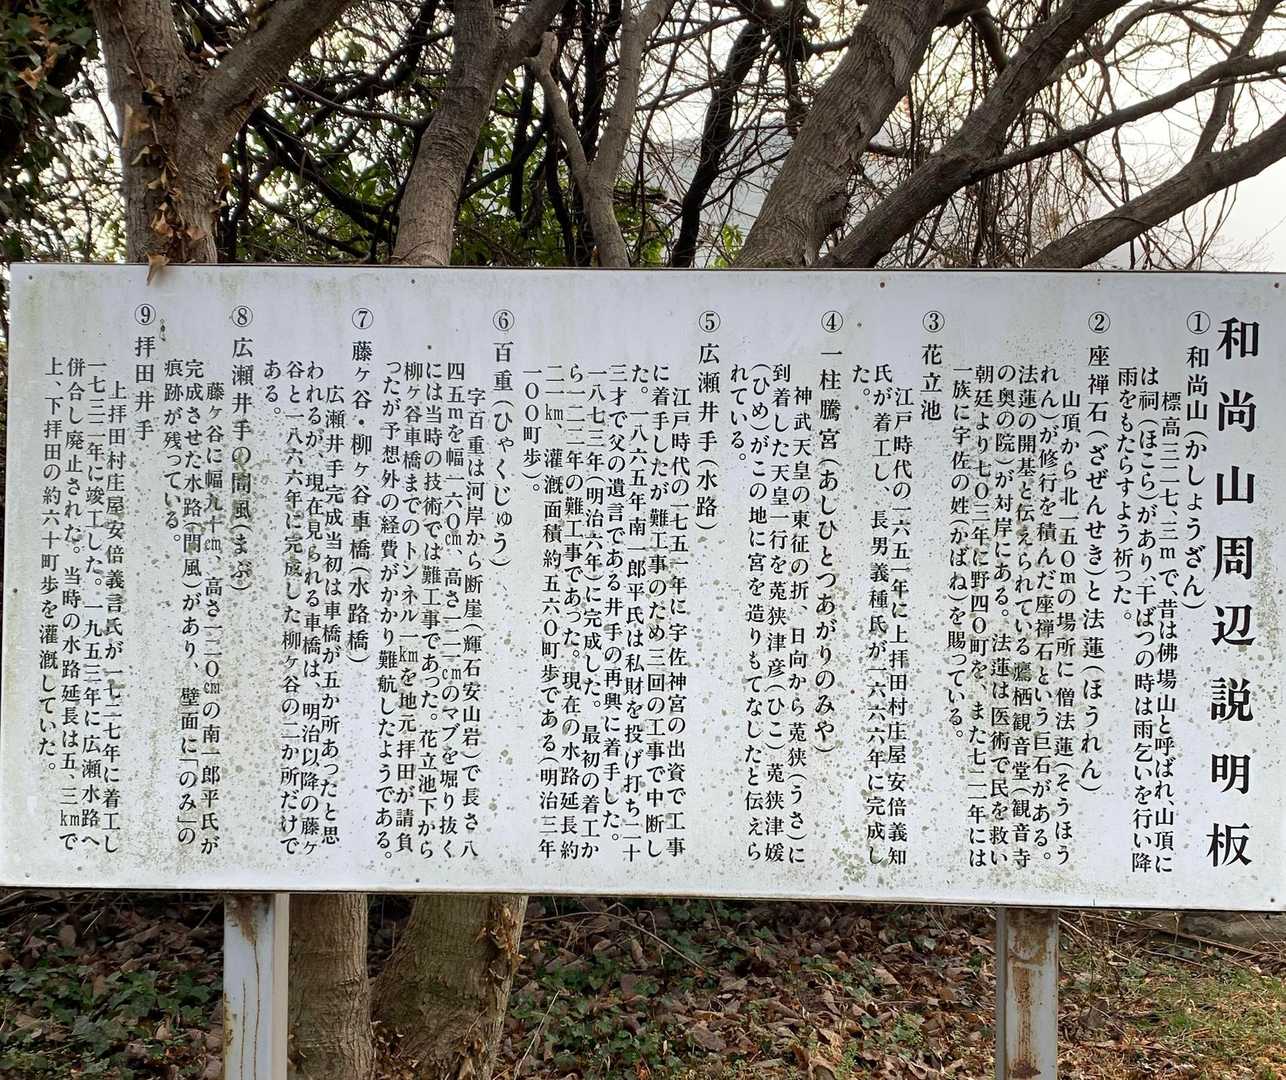 和尚山周辺説明板
①和尚山(かしょうざん)
標高三二七、三mで、昔は佛場山と呼ばれ、山頂に
は祠(ほこら)があり、干ばつの時は雨乞いを行い降
雨をもたらすよう祈った。
②座禅石(ざぜんせき)と法蓮(ほうれん)
山頂から北一五〇mの場所に僧法蓮(そうほう
れん)が修行を積んだ座禅石という巨石がある。
法蓮の開基と伝えられている鷹栖観音堂(観音寺
の奥の院)が対岸にある。法蓮は医術で民を救い
朝廷より七〇三年に野四〇町を、また七二一年には
一族に宇佐の姓(かばね)を賜っている。
③花立池
江戸時代の一六五一年に上拝田村庄屋安倍義知
氏が着工し、長男義種氏が一六六六年に完成し
た。
④一柱騰宮(あしひとつあがりのみや)
神武天皇の東征の折、日向から菟狭(うさ)に
到着した天皇一行を菟狭津彦(ひこ)菟狭津媛
(ひめ)がこの地に宮を造りもてなしたと伝えら
れている。
⑤広瀬井手(水路)
江戸時代の一七五一年に宇佐神宮の出資で工事
に着手したが難工事のため三回の工事で中断し
た。一八六五年南一郎平氏は私財を投げ打ち二十
三才で父の遺言である井手の再興に着手した。
一八七三年(明治六年)に完成した。最初の着工か
ら一二二年の難工事であった。現在の水路延長約
二二㎞、灌漑面積約五六〇町歩である(明治三年
一〇〇町歩)。
⑥百重(ひゃくじゅう)
字百重は河岸から断崖(輝石安山岩)で長さ八
四五mを幅一六〇㎝、高さ二一二㎝のマブを堀り抜く
には当時の技術では難工事であった。花立池下から
柳ヶ谷車橋までのトンネル一㎞を地元拝田が請負
ったが予想外の経費がかかり難航したようである。
⑦藤ヶ谷・柳ヶ谷車橋(水路橋)
広瀬井手完成当初は車橋が五か所あったと思
われるが、現在見られる車橋は、明治以降の藤ヶ
谷と一八六六年に完成した柳ヶ谷の二か所だけで
ある。
⑧広瀬井手の間風(まぶ)
藤ヶ谷に幅九十㎝、高さ一二〇㎝の南一郎平氏が
完成させた水路(間風)があり、壁面に「のみ」の
痕跡が残っている。
⑨拝田井手
上拝田村庄屋安倍義言氏が一七二七年に着工し
一七三二年に竣工した。一九五三年に広瀬水路へ
併合し廃止された。当時の水路延長は五、三㎞で
上、下拝田の約六十町歩を灌漑していた。